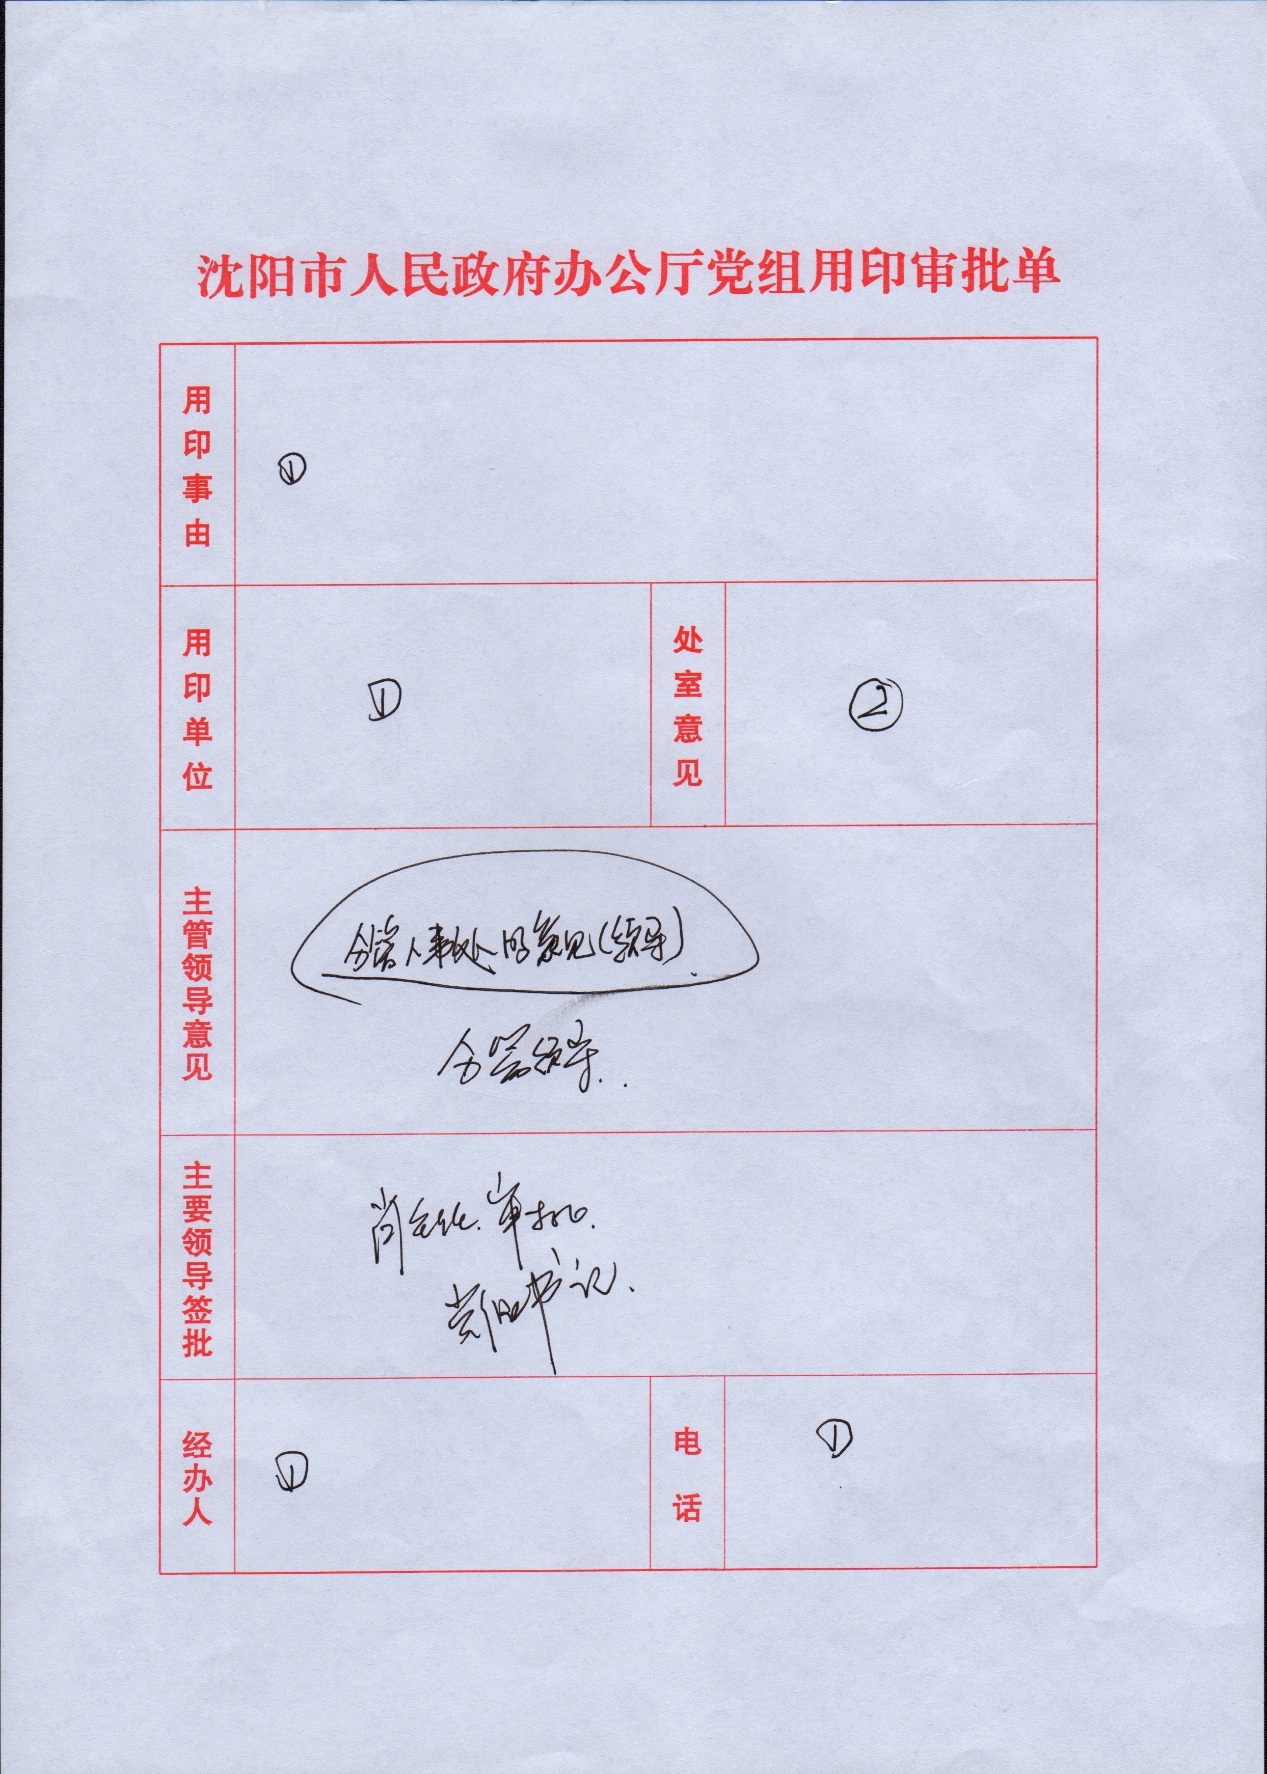 沈阳市人民政府办公厅党组用印审批单
用印事由
①
用印单位
①
处室意见
②
主管领导意见
分管人事处的意见(领导).
分管领导..
主要领导签批
审批.
书记.
经办人
①
电话
①